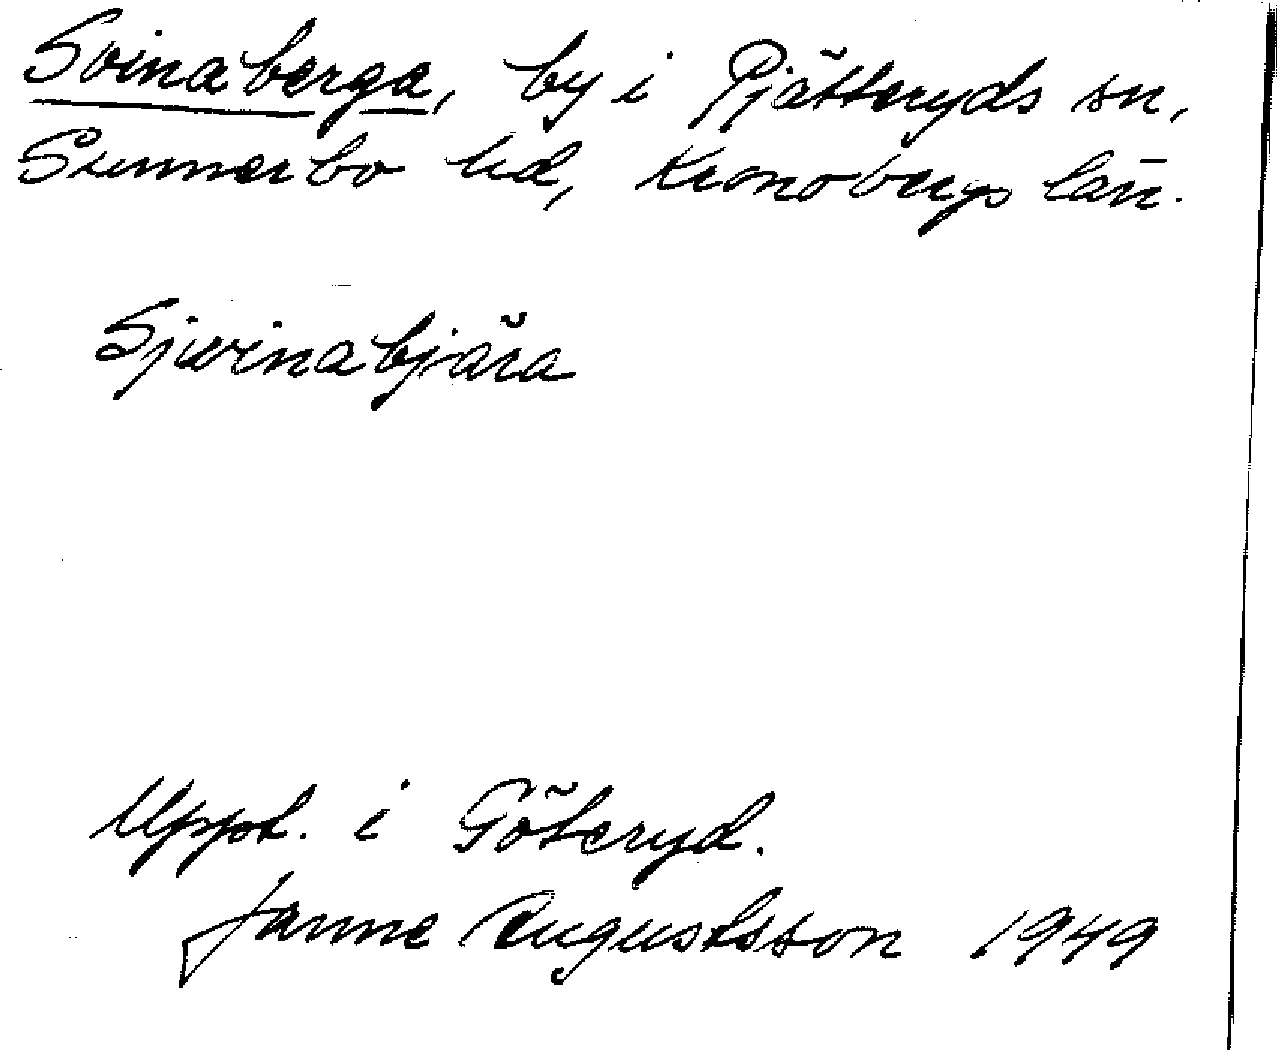 Svinaberga, by i Pjätteryds sn,
Sunnerbo hd, Kronobergs län.
Sjwinabjära
Uppt. i Göteryd.
Janne Augustsson 1949